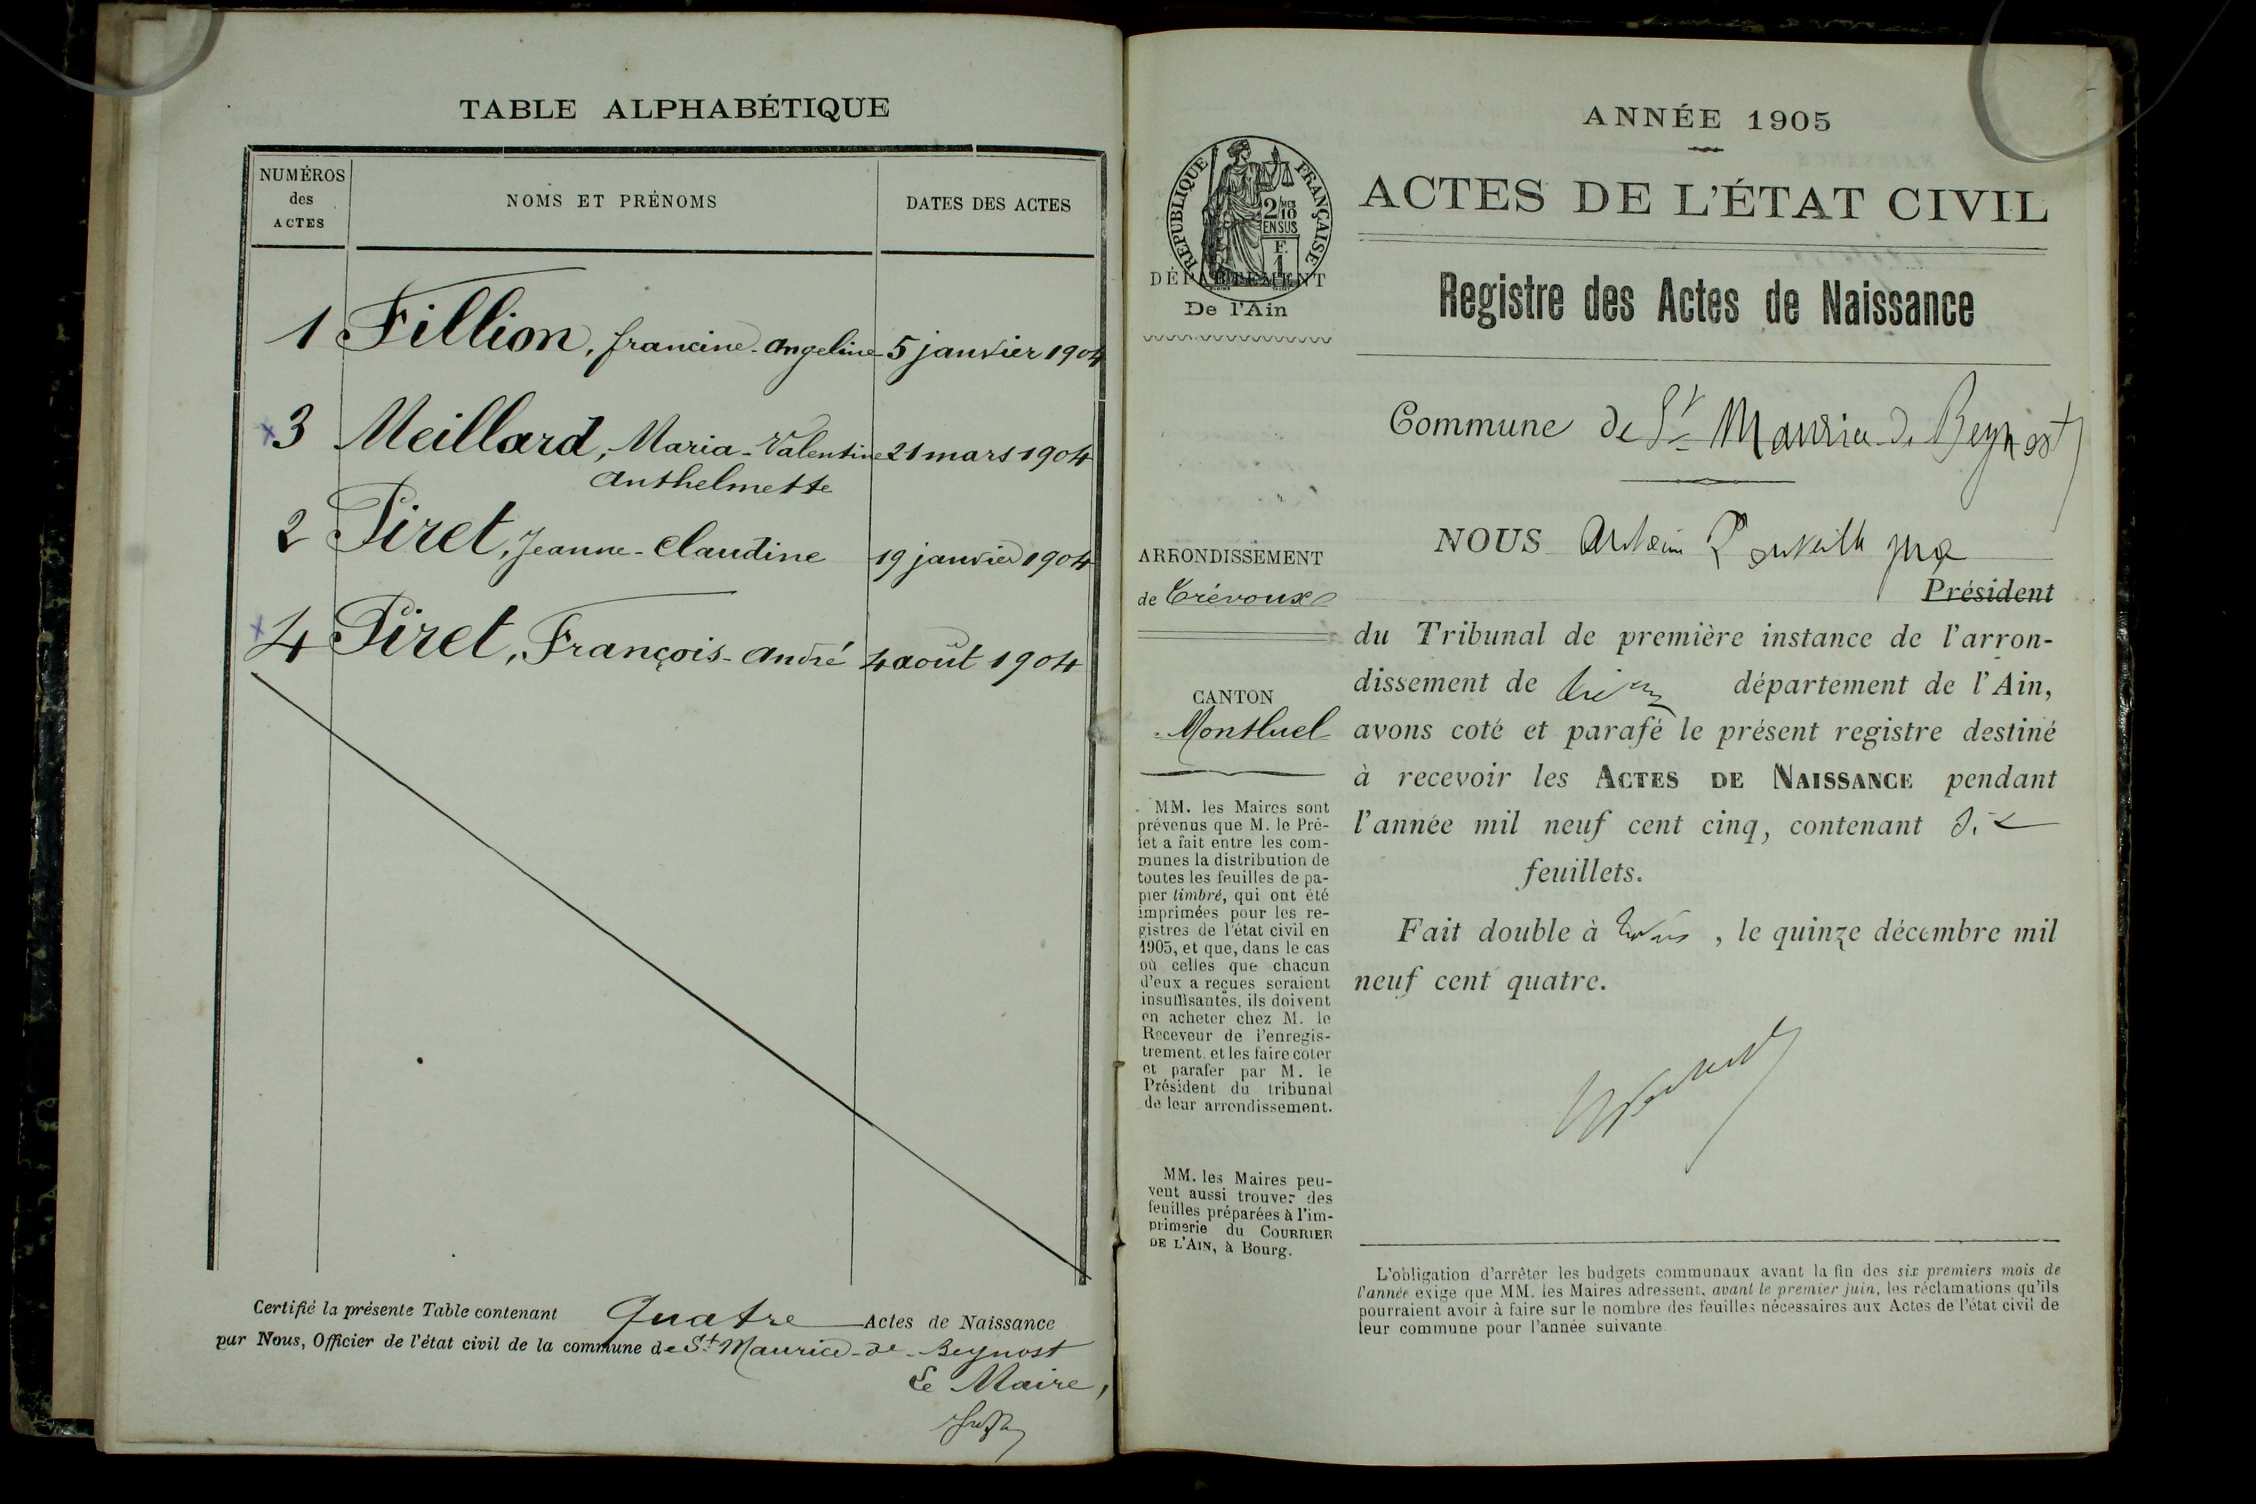 TABLE ALPHABÉTIQUE
NUMÉROS
des
ACTES
NOMS ET PRÉNOMS
DATES DES ACTES
1 Fillion, francine-angeline 5 janvier 1904
x3 Meillard, Maria-Valentine 21 mars 1904
anthelmette
2 Piret, Jeanne-Claudine 19 janvier 1904
x4 Piret, François-andré 4 août 1904
Certifié la présente Table contenant Quatre Actes de Naissance
par Nous, Officier de l'état civil de la commune de St Maurice-de-Beynost
Le Maire,
ANNÉE 1905
ACTES DE L'ÉTAT CIVIL
RÉPUBLIQUE FRANÇAISE
2/10
EN SUS
F.
1
DÉPARTEMENT
De l'Ain
Registre des Actes de Naissance
Commune de St Maurice de Beynost
ARRONDISSEMENT
de Trévoux
CANTON
Montluel
MM. les Maires sont
prévenus que M. le Pré-
fet a fait entre les com-
munes la distribution de
toutes les feuilles de pa-
pier timbré, qui ont été
imprimées pour les re-
gistres de l'état civil en
1905, et que, dans le cas
où celles que chacun
d'eux a reçues seraient
insuffisantes, ils doivent
en acheter chez M. le
Receveur de l'enregis-
trement et les faire coter
et parafer par M. le
Président du tribunal
de leur arrondissement.
MM. les Maires peu-
vent aussi trouver des
feuilles préparées à l'im-
primerie du COURRIER
DE L'AIN, à Bourg.
NOUS
Président
du Tribunal de première instance de l'arron-
dissement de département de l'Ain,
avons coté et parafé le présent registre destiné
à recevoir les ACTES DE NAISSANCE pendant
l'année mil neuf cent cinq, contenant
feuillets.
Fait double à , le quinze décembre mil
neuf cent quatre.
L'obligation d'arrêter les budgets communaux avant la fin des six premiers mois de
l'année exige que MM. les Maires adressent, avant le premier juin, les réclamations qu'ils
pourraient avoir à faire sur le nombre des feuilles nécessaires aux Actes de l'état civil de
leur commune pour l'année suivante.